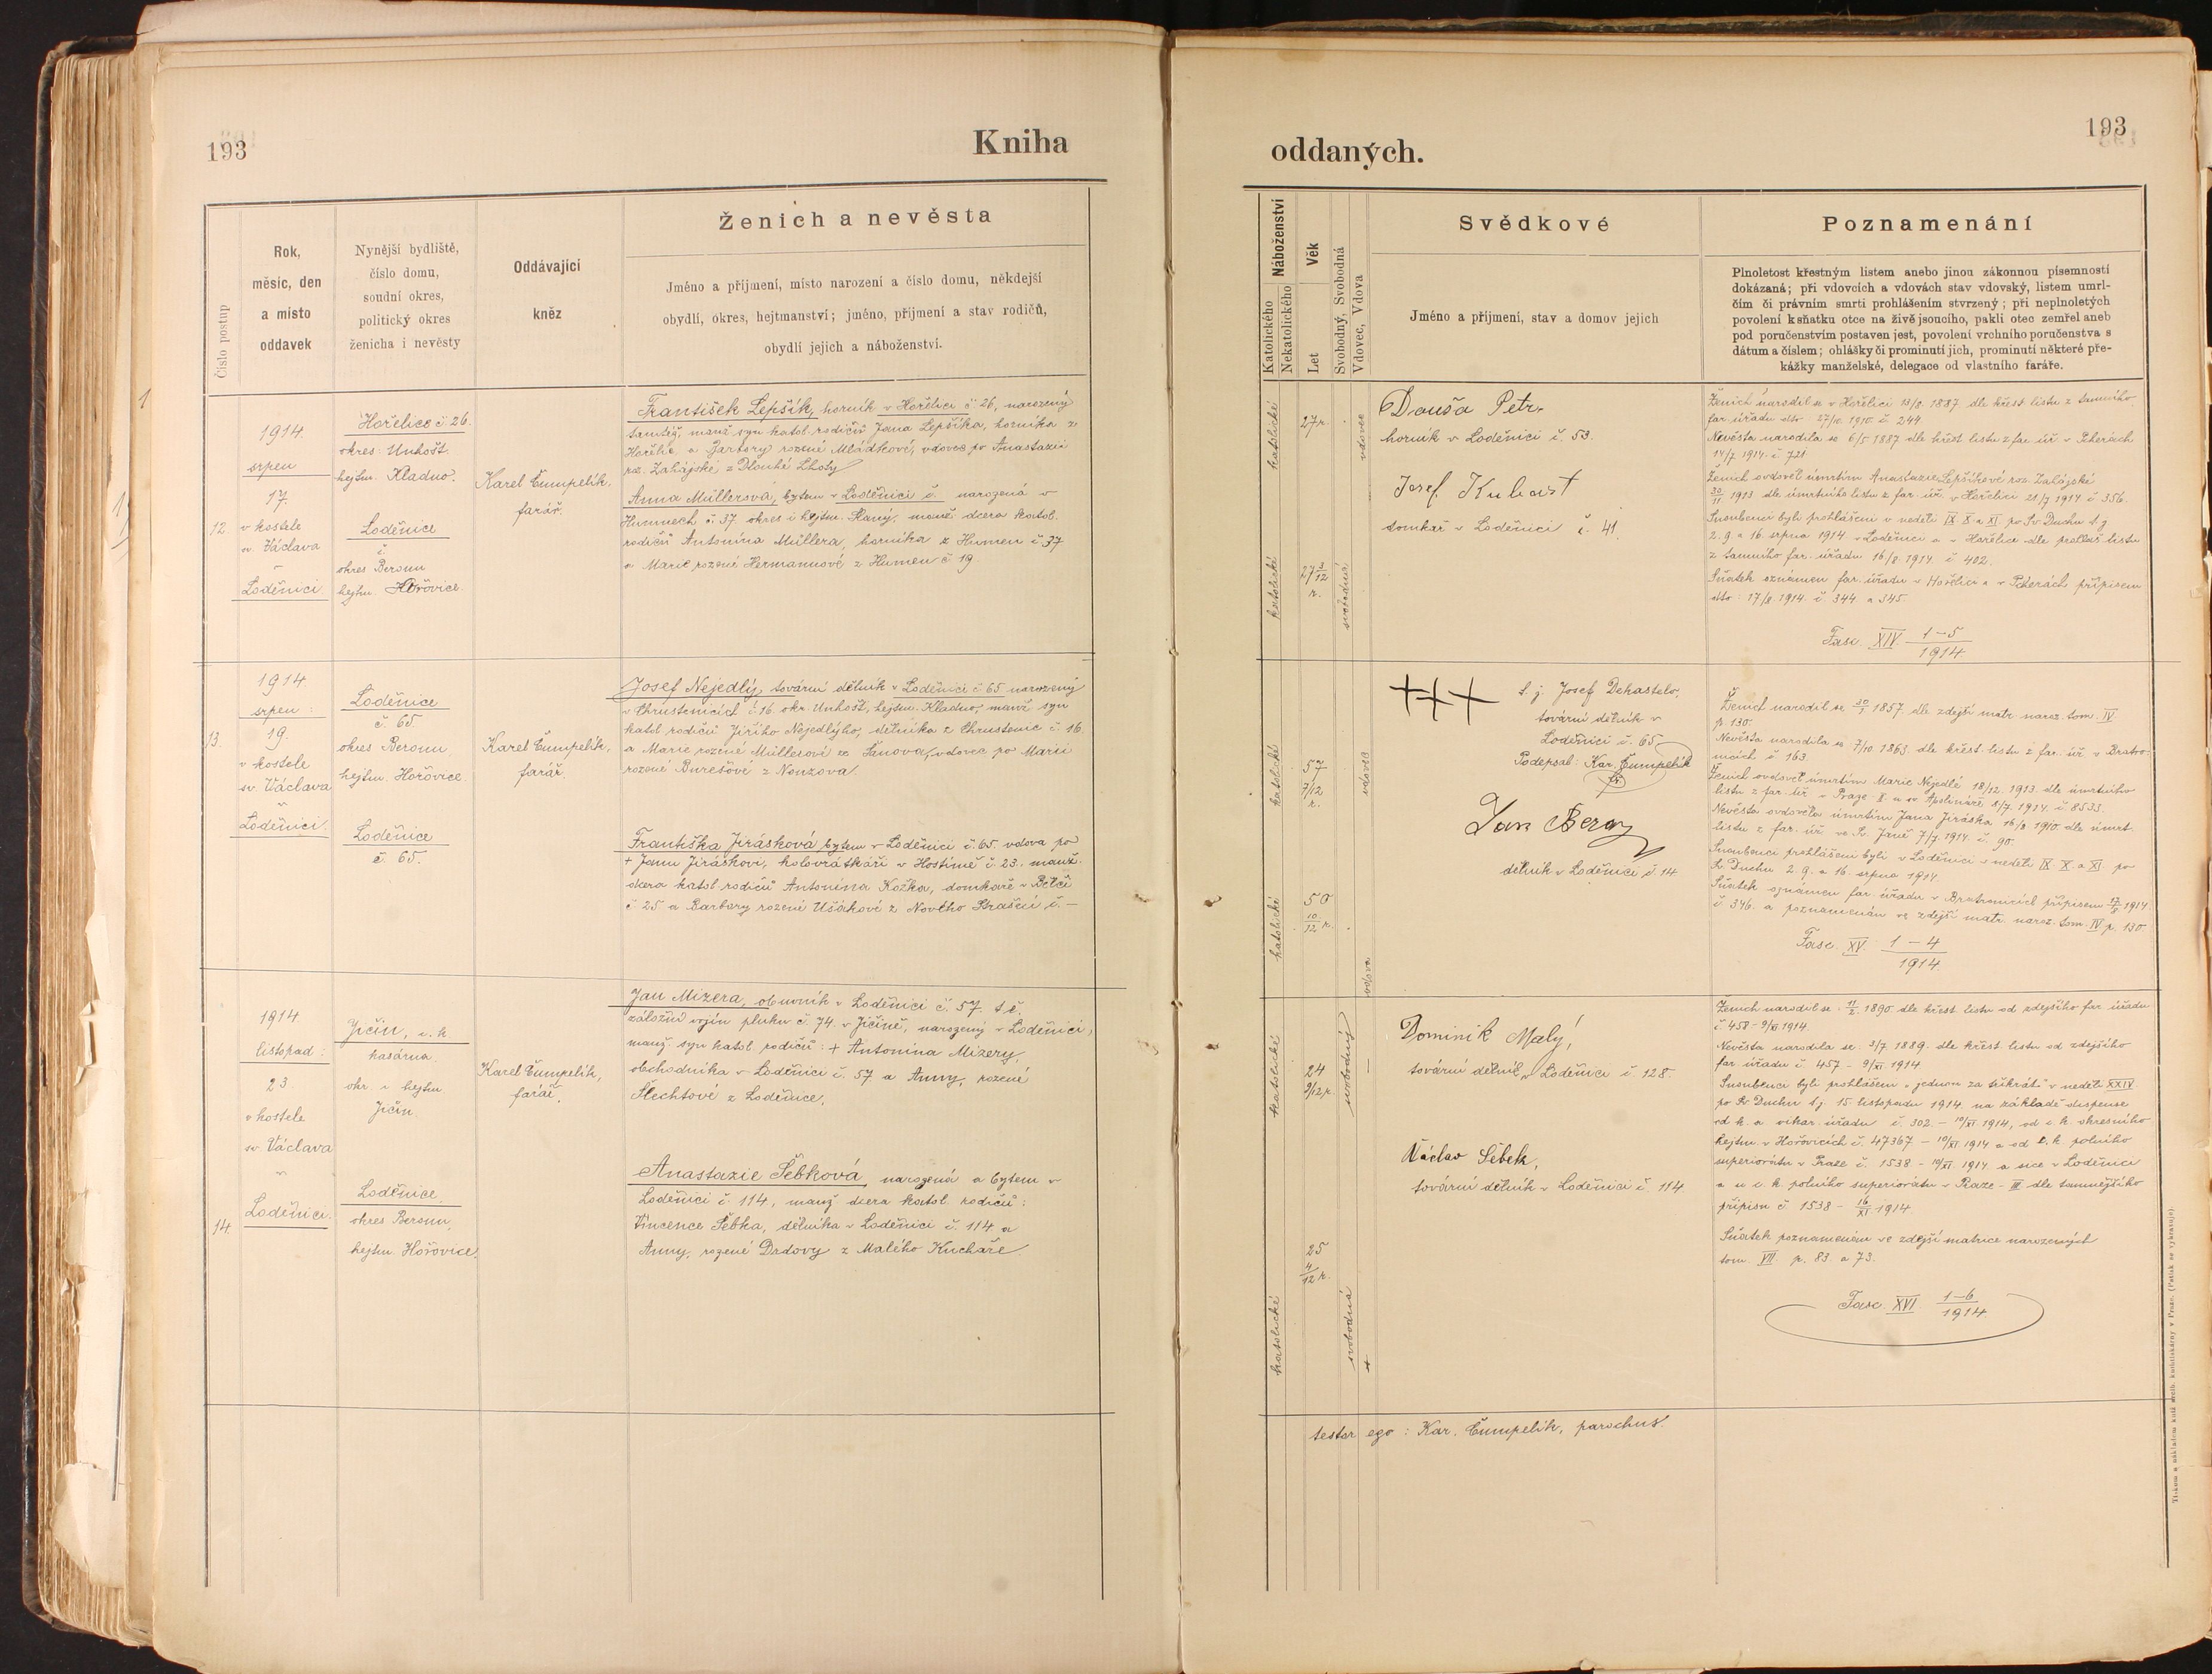 193
Kniha
Číslo postup
Rok,
měsíc, den
a místo
oddavek
Nynější bydliště,
číslo domu,
soudní okres,
politický okres
ženicha i nevěsty
Oddávající
kněz
Ženich a nevěsta
Jméno a příjmení, místo narození a číslo domu, někdejší
obydlí, okres, hejtmanství; jméno, příjmení a stav rodičů,
obydlí jejich a náboženství.
12.
1914.
srpen
17.
v kostele
sv. Václava
v
Loděnici.
Hořelice č. 26.
okres: Unhošt.
hejtm. Kladno.
Loděnice
č.
okres Beroun
hejtm. Hořovice.
Karel Čumpelík,
farář.
František Lepšík, horník v Hořelici č. 26, narozený
tamtéž, manž. syn katol. rodičů Jana Lepšíka, horníka z
Hořelic a Barbory rozené Mládkové, vdovec po Anastazii
roz. Zahájské, z Dlouhé Lhoty
Anna Müllerová, bytem v Loděnici č. narozená v
Humnech č. 37 okres i hejtm. Slaný, manž. dcera katol.
rodičů Antonína Müllera, horníka z Humen č. 37
a Marie rozené Hermannové z Humen č. 19.
13.
1914
srpen:
19.
v kostele
sv. Václava
v
Loděnici.
Loděnice
č. 65.
okres Beroun,
hejtm. Hořovice.
Loděnice
č. 65.
Karel Čumpelík,
farář.
Josef Nejedlý, tovární dělník v Loděnici č. 65 narozený
v Chrustenicích č. 16. okr. Unhošt, hejtm. Kladno, manž. syn
katol. rodičů Jiřího Nejedlýho, dělníka z Chrustenic č. 16.
a Marie rozené Müllerové ze Šanova, vdovec po Marii
rozené Burešové z Nouzova.
Františka Jirásková bytem v Loděnici č. 65. vdova po
+ Janu Jiráskovi, kolovrátkáři v Hostímě č. 23. manž.
dcera katol. rodičů Antonína Kožka, domkaře v Bělči
č. 25 a Barbory rozené Ušákové z Nového Strašecí č. –
14.
1914
listopad:
23.
v kostele
sv. Václava
v
Loděnici.
Jičín, c. k.
kasárna.
okr. i hejtm
Jičín.
Loděnice.
okres Beroun,
hejtm. Hořovice.
Karel Čumpelík,
farář.
Jan Mizera, obuvník v Loděnici č. 57. t. č.
záložní vojín pluku č. 74. v Jičíně, narozený v Loděnici,
manž. syn katol. rodičů: + Antonína Mizery,
obchodníka v Loděnici č. 57 a Anny, rozené
Šlechtové z Loděnice.
Anastazie Šebková, narozená a bytem v
Loděnici č. 114, manž. dcera katol. rodičů:
Vincence Šebka, dělníka v Loděnici č. 114 a
Anny, rozené Drdovy z Malého Kuchaře.
193
oddaných.
Náboženství
Katolického
Nekatolického
Věk
Let
Svobodný, Svobodná
Vdovec, Vdova
Svědkové
Jméno a příjmení, stav a domov jejich
Poznamenání
Plnoletost křestným listem anebo jinou zákonnou písemností
dokázaná; při vdovcích a vdovách stav vdovský, listem umrl-
čím či právním smrti prohlášením stvrzený; při neplnoletých
povolení k sňatku otce na živě jsoucího, pakli otec zemřel aneb
pod poručenstvím postaven jest, povolení vrchního poručenstva s
dátum a číslem; ohlášky či prominutí jich, prominutí některé pře-
kážky manželské, delegace od vlastního faráře.
katolické
27 r.
vdovec
katolické
27 3/12
r.
svobodná
Douša Petr
horník v Loděnici č. 53.
Josef Kubast
domkař v Loděnici č. 41.
Ženich narodil se v Hořelici 13/8. 1887 dle křest. listu z tamního
far. úřadu dto 27/10. 1910. č. 244.
Nevěsta narodila se 6/5 1887 dle křest. listu z far. úř. v Pcherách
14/7 1914. č. 721.
Ženich ovdověl úmrtím Anastazie Lepšíkové roz. Zahájské
30/11 1913 dle úmrtního listu z far. úř. v Hořelici 21/7 1914 č. 356.
Snoubenci byli prohlášeni v neděli IX X a XI. po Sv. Duchu t. j.
2. 9. a 16. srpna 1914 v Loděnici a v Hořelici dle prohláš. listu
z tamního far. úřadu 16/8. 1914. č. 402.
Sňatek oznámen far. úřadu v Hořelici a v Pcherách přípisem
dto: 17/8. 1914. č. 344. a 345.
Fasc. XIV. 1–5/1914.
katolické
57
7/12
r.
vdovec
katolické
50
10/12 r.
vdova
+++ t. j. Josef Dekastelo,
tovární dělník v
Loděnici č. 65
Podepsal: Kar. Čumpelík
far.
Jan Beran
dělník v Loděnici č. 14
Ženich narodil se 30/1 1857. dle zdejší matr. naroz. tom. IV
p. 130.
Nevěsta narodila se 7/10. 1863. dle křest. listu z far. úř. v Bratro-
nicích č. 163.
Ženich ovdověl úmrtím Marie Nejedlé 18/12. 1913. dle úmrtního
listu z far. úř. v Praze II. u sv. Apolináře 1/7. 1914. č. 8533.
Nevěsta ovdověla úmrtím Jana Jiráska 16/8. 1910. dle úmrt.
listu z far. úř. ve Sv. Janě 7/7. 1914. č. 90.
Snoubenci prohlášeni byli v Loděnici v neděli IX X a XI. po
Sv. Duchu 2. 9. a 16. srpna 1914.
Sňatek oznámen far. úřadu v Bratronicích přípisem 17/8. 1914.
č. 346. a poznamenán ve zdejší matr. naroz. tom. IV p. 130.
Fasc. XV. 1–4/1914.
katolické
24
9/12 r.
svobodný
–
katolické
25
4/12 r.
svobodná
Dominik Malý,
tovární dělník v Loděnici č. 128.
Václav Šebek,
tovární dělník v Loděnici č. 114
Ženich narodil se 11/2. 1890. dle křest. listu od zdejšího far. úřadu
č. 458 – 9/XI 1914.
Nevěsta narodila se 3/7 1889. dle křest. listu od zdejšího
far. úřadu č. 457 – 9/XI 1914
Snoubenci byli prohlášeni „jednou za třikrát“ v neděli XXIV.
po Sv. Duchu t. j. 15. listopadu 1914. na základě dispense
od k. a. vikar. úřadu č. 302. – 10/XI 1914, od c. k. okresního
hejtm. v Hořovicích č. 47367 – 10/XI 1914 a od c. k. polního
superiorátu v Praze č. 1538 – 10/XI. 1914. a sice v Loděnici
a u c. k. polního superiorátu v Praze – III dle tamnějšího
přípisu č. 1538 – 16/XI. 1914
Sňatek poznamenán ve zdejší matrice narozených
tom. VII. p. 83. a 73.
Fasc. XVI. 1–6/1914
testor ego: Kar. Čumpelík, parochus.